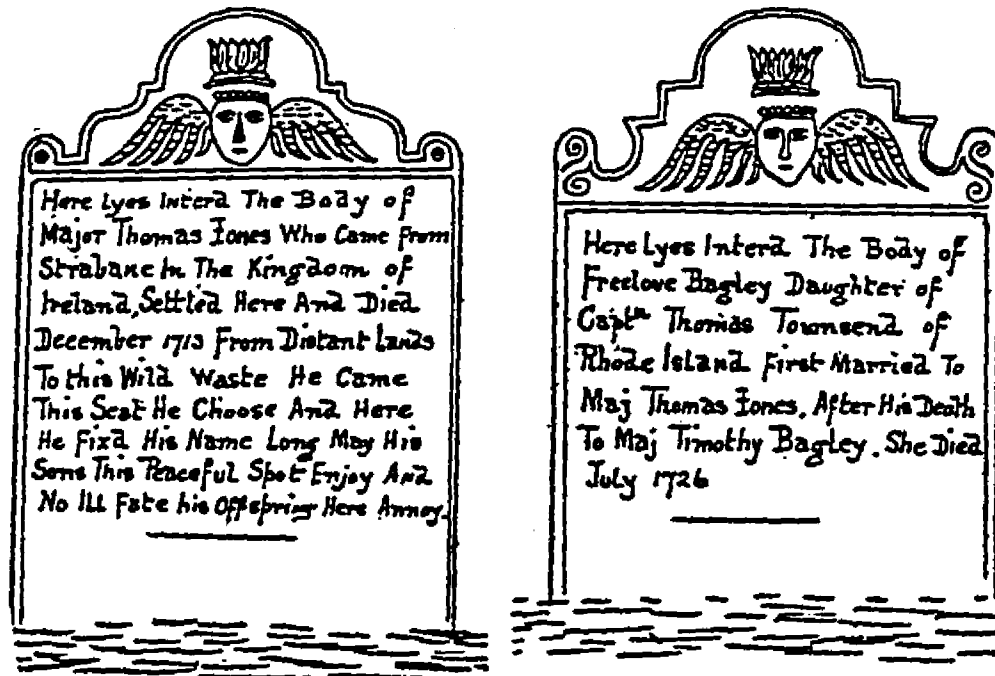 Here Lyes Interd The Body of
Major Thomas Iones Who Came From
Strabane In The Kingdom of
Ireland, Settled Here And Died
December 1713 From Distant Lands
To this Wild Waste He Came
This Seat He Choose And Here
He Fixd His Name Long May His
Sons This Peaceful Spot Enjoy And
No Ill Fate his Offspring Here Annoy.
Here Lyes Interd The Body of
Freelove Bagley Daughter of
Captn Thomas Townsend of
Rhode Island First Married To
Maj Thomas Iones. After His Death
To Maj Timothy Bagley. She Died
July 1726